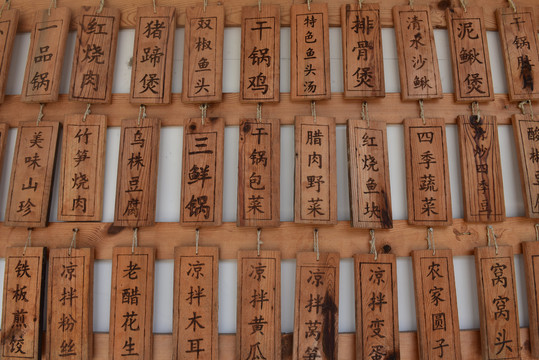 一品锅
红烧肉
猪蹄煲
双椒鱼头
干锅鸡
特色鱼头汤
排骨煲
清水沙鳅
泥鳅煲
美味山珍
竹笋烧肉
乌株豆腐
三鲜锅
干锅包菜
腊肉野菜
红烧鱼块
四季蔬菜
干炒四季豆
铁板煎饺
凉拌粉丝
老醋花生
凉拌木耳
凉拌黄瓜
凉拌莴笋
凉拌变蛋
农家圆子
窝窝头